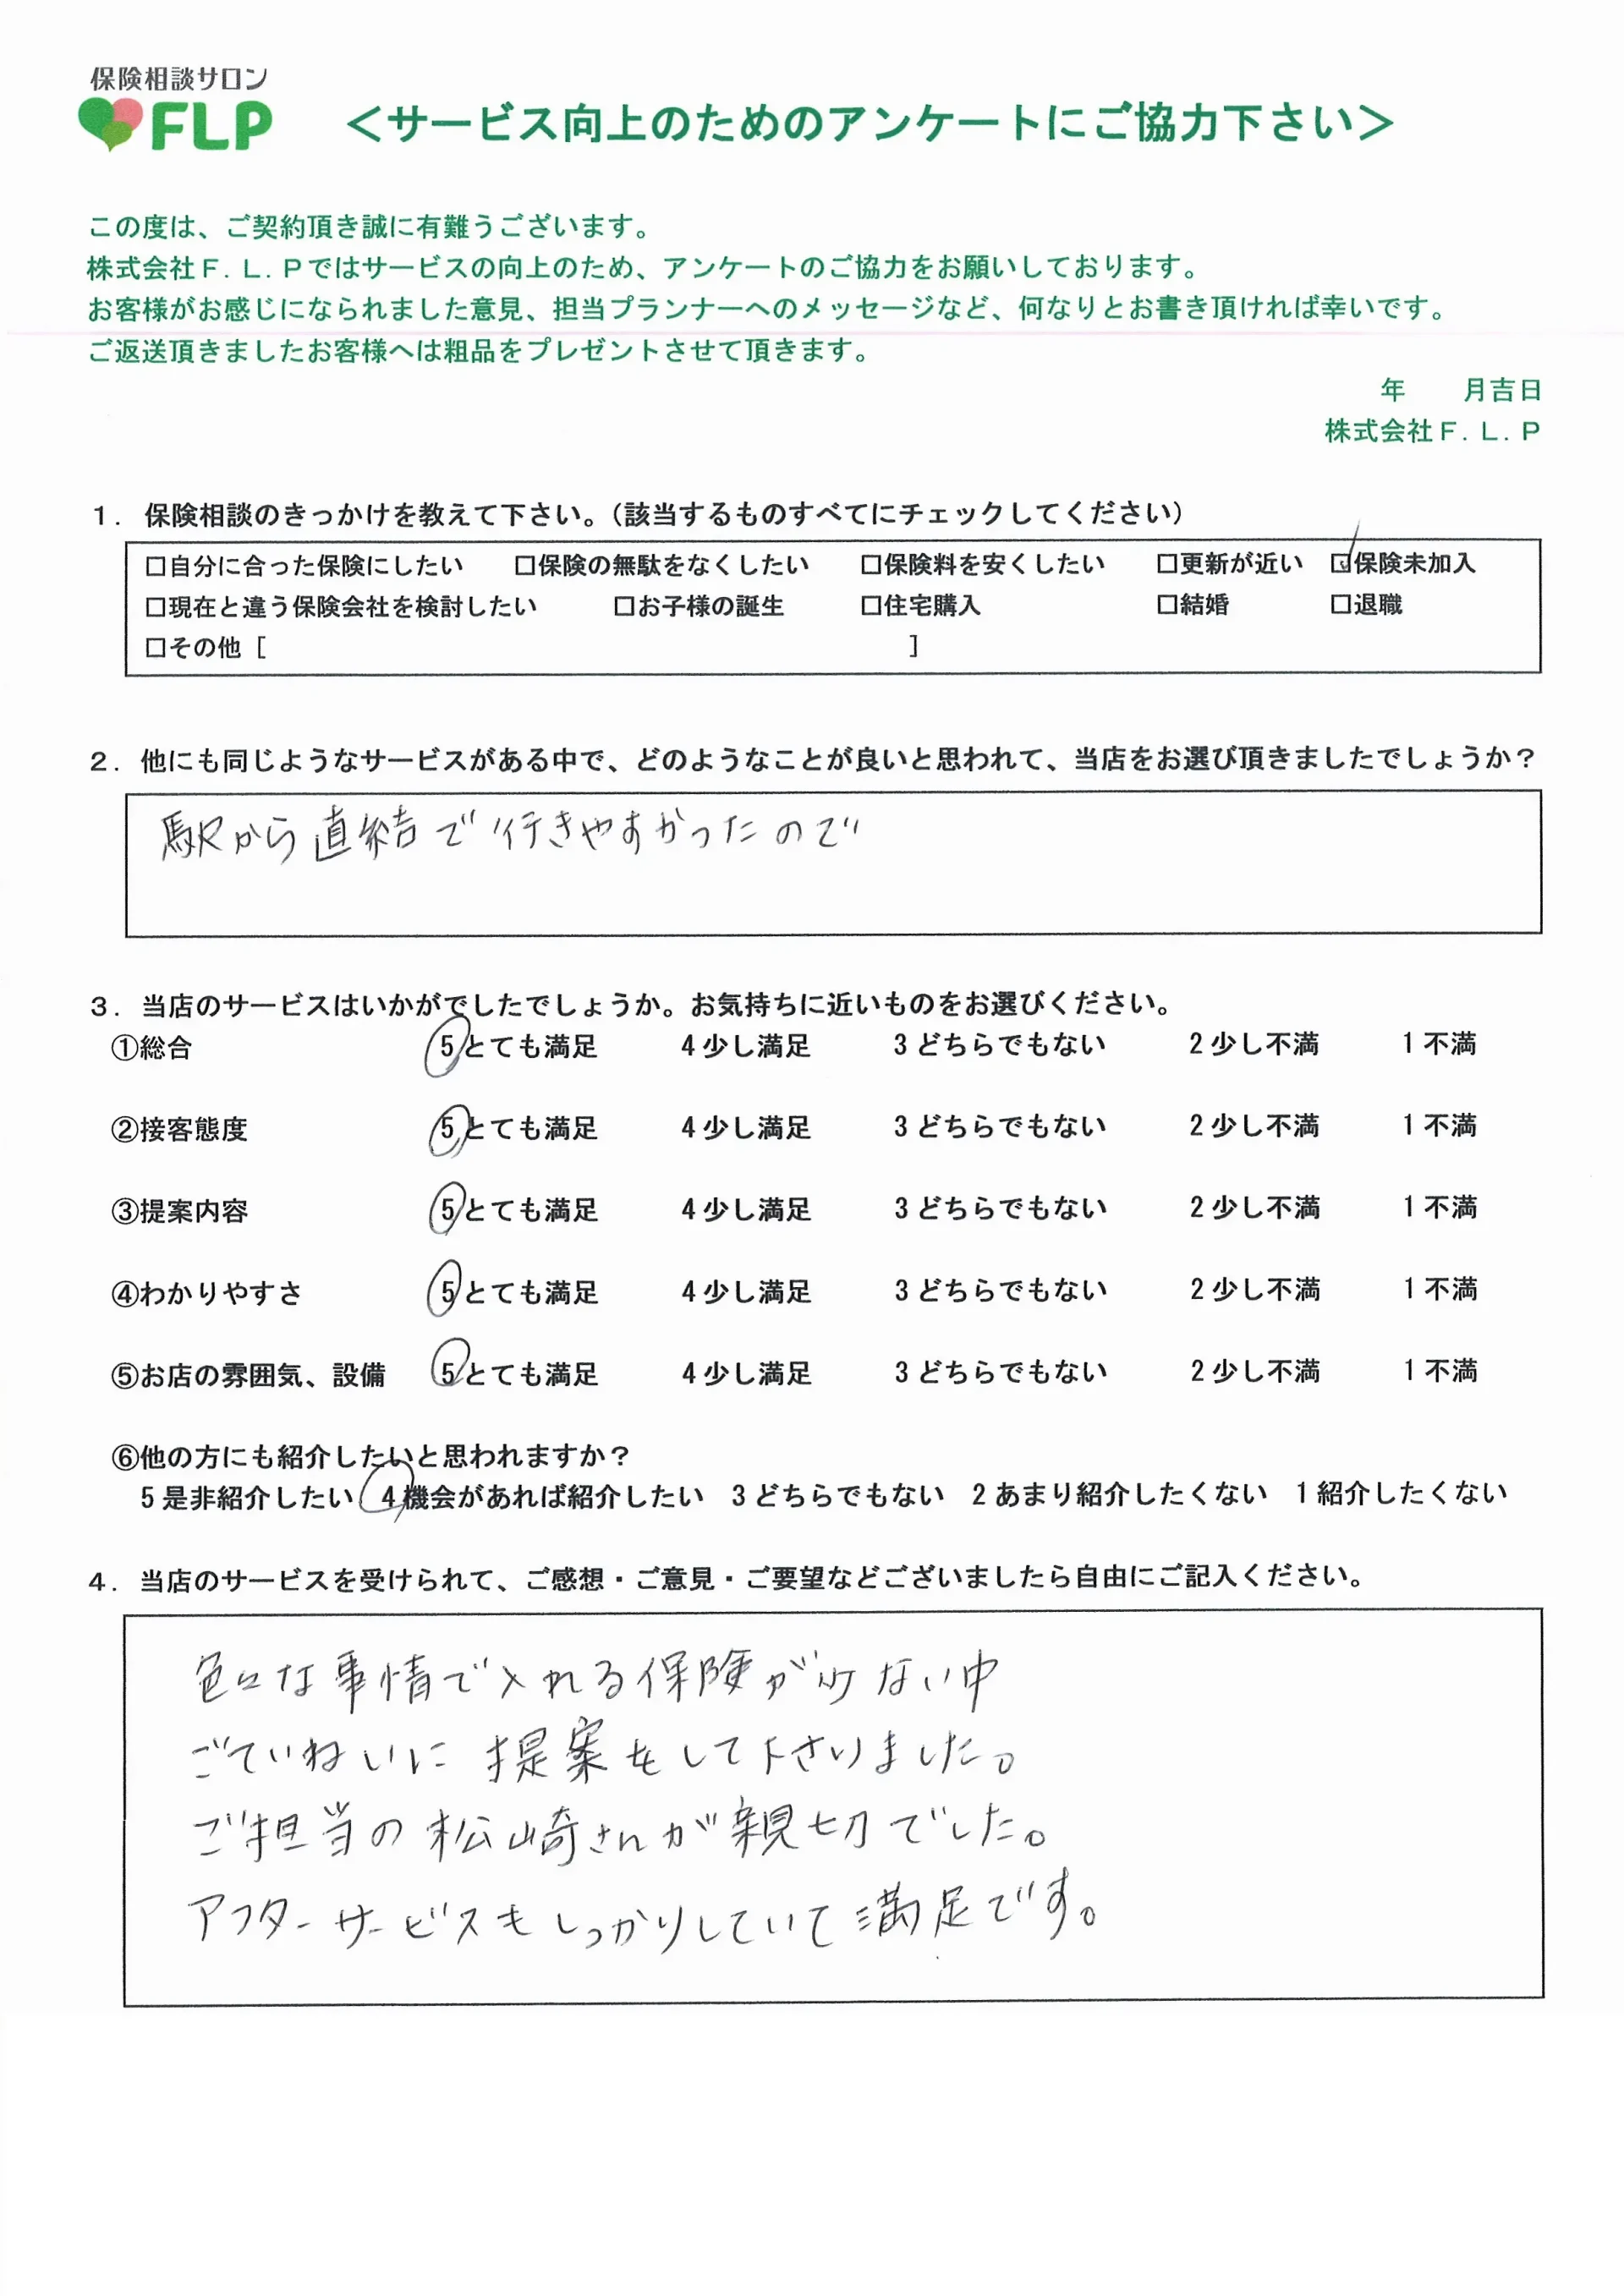 保険相談サロン
FLP
＜サービス向上のためのアンケートにご協力下さい＞
この度は、ご契約頂き誠に有難うございます。
株式会社Ｆ．Ｌ．Ｐではサービスの向上のため、アンケートのご協力をお願いしております。
お客様がお感じになられました意見、担当プランナーへのメッセージなど、何なりとお書き頂ければ幸いです。
ご返送頂きましたお客様へは粗品をプレゼントさせて頂きます。
年　　月吉日
株式会社Ｆ．Ｌ．Ｐ
１．保険相談のきっかけを教えて下さい。（該当するものすべてにチェックしてください）
□自分に合った保険にしたい　□保険の無駄をなくしたい　□保険料を安くしたい　□更新が近い　☑保険未加入
□現在と違う保険会社を検討したい　□お子様の誕生　□住宅購入　□結婚　□退職
□その他［　　　］
２．他にも同じようなサービスがある中で、どのようなことが良いと思われて、当店をお選び頂きましたでしょうか？
駅から直結で行きやすかったので
３．当店のサービスはいかがでしたでしょうか。お気持ちに近いものをお選びください。
①総合　5とても満足　4少し満足　3どちらでもない　2少し不満　1不満
②接客態度　5とても満足　4少し満足　3どちらでもない　2少し不満　1不満
③提案内容　5とても満足　4少し満足　3どちらでもない　2少し不満　1不満
④わかりやすさ　5とても満足　4少し満足　3どちらでもない　2少し不満　1不満
⑤お店の雰囲気、設備　5とても満足　4少し満足　3どちらでもない　2少し不満　1不満
⑥他の方にも紹介したいと思われますか？
5是非紹介したい　4機会があれば紹介したい　3どちらでもない　2あまり紹介したくない　1紹介したくない
４．当店のサービスを受けられて、ご感想・ご意見・ご要望などございましたら自由にご記入ください。
色々な事情で入れる保険が少ない中
ごていねいに提案をして下さいました。
ご担当の松山崎さんが親切でした。
アフターサービスもしっかりしていて満足です。